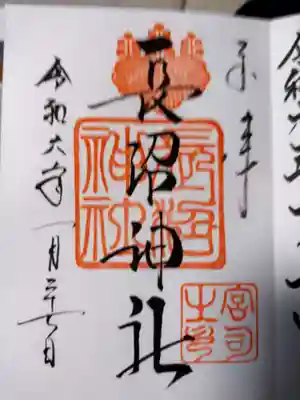 奉拝
長沼神社
長沼神社
宮司
之印
令和六年一月二十七日